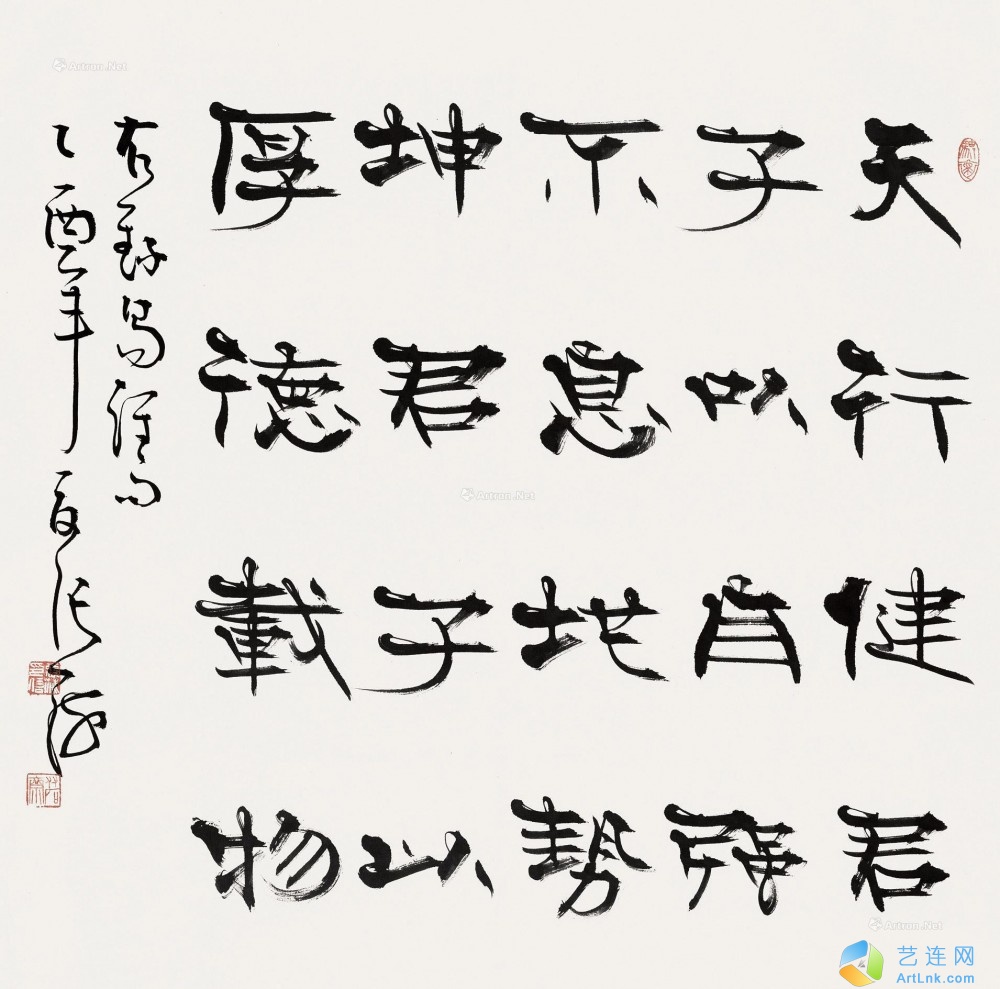 天行健君
子以自强
不息地勢
坤君子以
厚德載物
右録易經句
乙酉年夏张海
Artron.Net
Artron.Net
Artron.Net
艺连网
ArtLnk.com